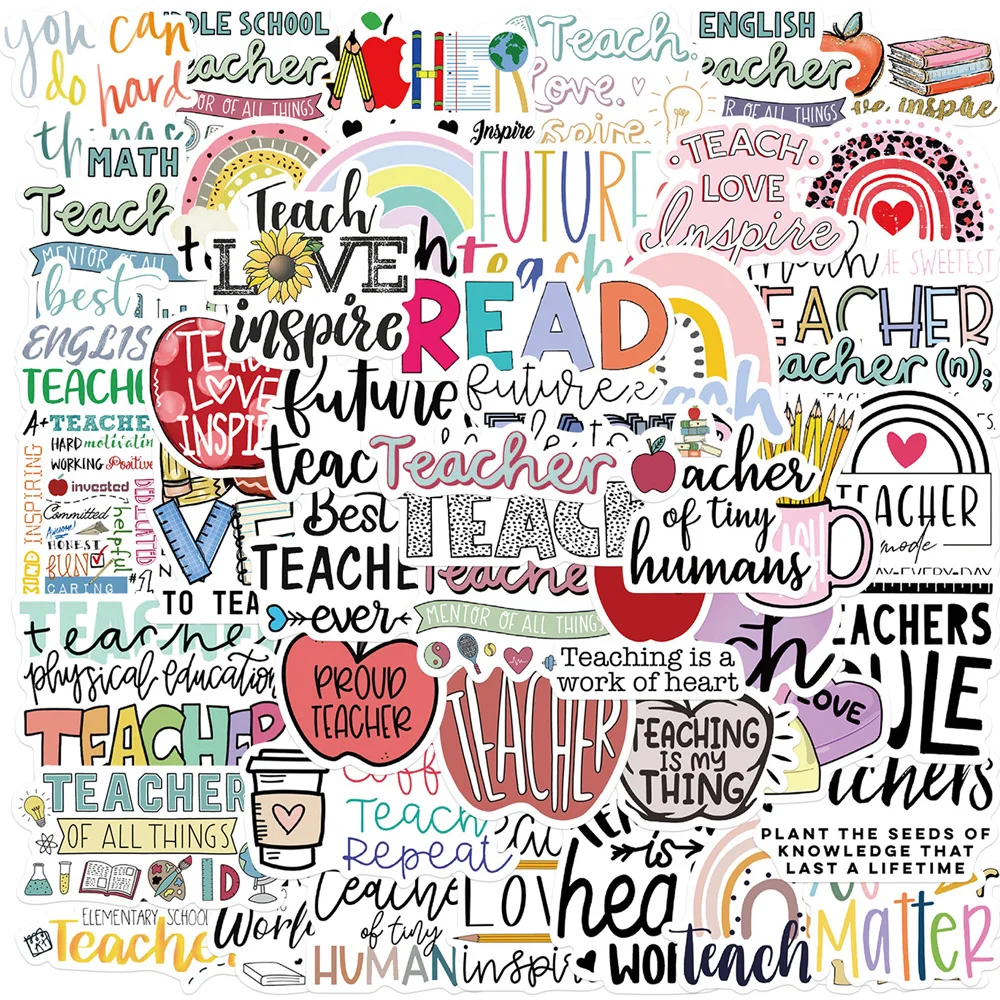 you can
do hard
things
DLE SCHOOL
eacher
OR OF ALL THINGS
Teach.
Love.
ENGLISH
eacher
R OF ALL THINGS
inspire
MATH
Teach
MENTOR OF ALL
Inspire
FUTURE
teach
TEACH
LOVE
Inspire
Teach
LOVE
inspire
READ
THE SWEETEST
TEACHER
eacher (n);
best
ENGLIS
TEACHE
TEAC
LOVE
INSPI
future
teac
future
Teacher
eacher
of tiny
humans
TEACHER
mode
AY-EVERY-DAY
A+ TEACHE
HARD motivatin
WORKING Positive
INSPIRING
invested
Committed
Awesome!
HONEST
FUN
helpful
DEDICATED
CARING
#1
TO TEA
Best
TEACHE
ever
TEACH
Teache
MENTOR OF ALL THINGS
teache
physical education
TEACHER
PROUD
TEACHER
TEACHER
Teaching is a
work of heart
TEACHING
IS MY
THING
LOVE
EACHERS
ULE
TEACHER
OF ALL THINGS
Teach
Repeat
is
hea
WOR
eachers
PLANT THE SEEDS OF
KNOWLEDGE THAT
LAST A LIFETIME
ELEMENTARY SCHOOL
Teache
Work
Teache
of tiny
HUMAN
LOV
inspi
teach
Matter